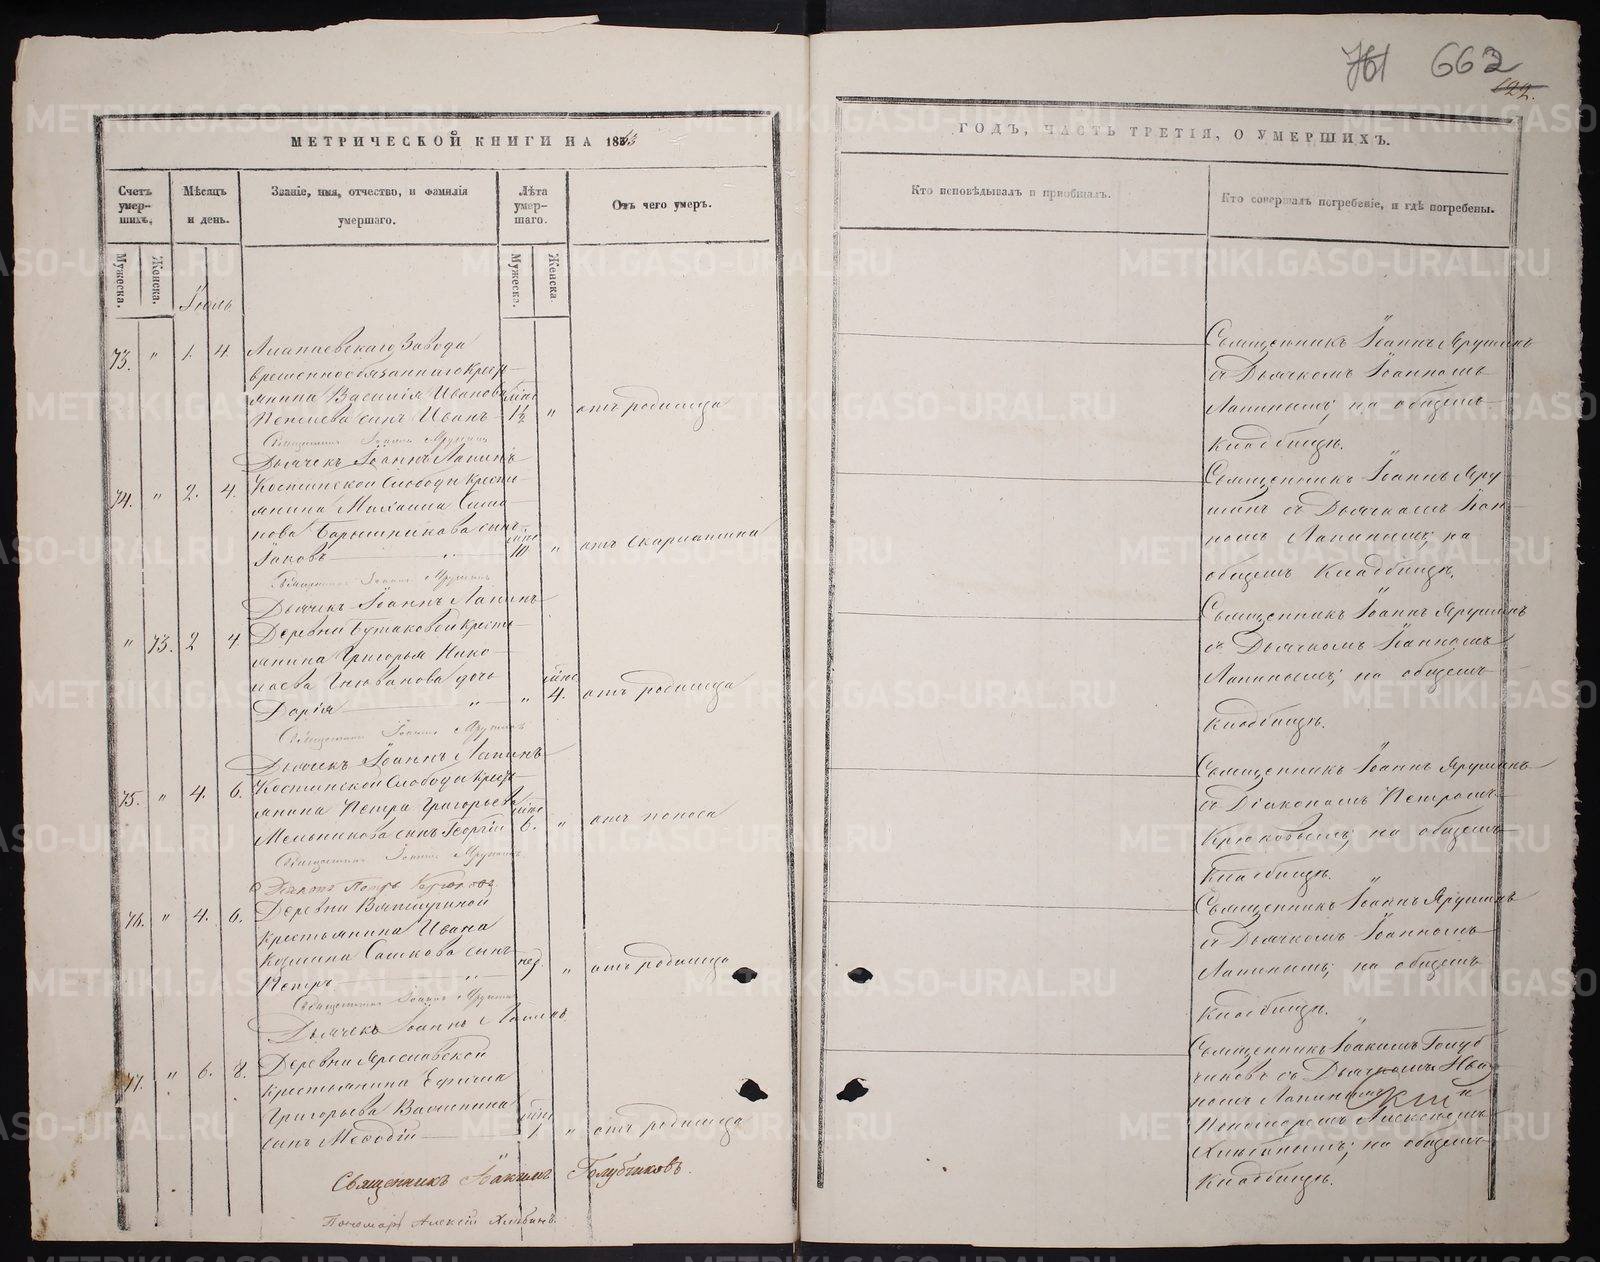 761 662
122.
МЕТРИЧЕСКОЙ КНИГИ НА 1863
ГОДЪ, ЧАСТЬ ТРЕТІЯ, О УМЕРШИХЪ.
Счетъ умер-шихъ.
Мѣсяцъ и день.
Званіе, имя, отчество, и фамилія умершаго.
Лѣта умер-шаго.
Отъ чего умеръ.
Кто исповѣдывалъ и пріобщалъ.
Кто совершалъ погребеніе, и гдѣ погребены.
Мужеска.
Женска.
Мужеска.
Женска.
Іюль
73. " 1. 4. Алапаевскаго Завода
временнообязаннаго крестъ-
янина Василія Иванова лѣтъ
сынъ Иванъ 1½ " отъ родимца
Священникъ Іоаннъ Ярушинъ
Дьячекъ Іоаннъ Лапинъ
Священникъ Іоаннъ Ярушинъ
съ Дьячкомъ Іоанномъ
Лапинымъ; на общемъ
Кладбищѣ.
74. " 2. 4. Костинской Слободы крестъ-
янина Михаила Сима-
нова Барышникова сынъ лѣтъ
Іаковъ " 10 " отъ скарлатина
Священникъ Іоаннъ Ярушинъ
Дьячекъ Іоаннъ Лапинъ
Священникъ Іоаннъ Яру-
шинъ съ Дьячкомъ Іоан-
номъ Лапинымъ; на
общемъ Кладбищѣ.
" 73. 2 4. Деревни Бутаковой кресть-
янина Григорья Нико-
лаева дочь лѣтъ
Дарія " " 4. отъ родимца
Священникъ Іоаннъ Ярушинъ
Дьячекъ Іоаннъ Лапинъ
Священникъ Іоаннъ Ярушинъ
съ Дьячкомъ Іоанномъ
Лапинымъ; на общемъ
Кладбищѣ.
75. " 4. 6. Костинской Слободы кресть-
янина Петра Григорьева лѣтъ
Мельникова сынъ Георгій 6. " отъ поноса
Священникъ Іоаннъ Ярушинъ
Діаконъ Петръ Крюковъ
Священникъ Іоаннъ Ярушинъ
съ Діакономъ Петромъ
Крюковымъ; на общемъ
Кладбищѣ.
76. " 4. 6. Деревни
крестьянина Ивана
Козмина Сашкова сынъ нед.
Петръ " " отъ родимца
Священникъ Іоаннъ Ярушинъ
Дьячекъ Іоаннъ Лапинъ
Священникъ Іоаннъ Ярушинъ
съ Дьячкомъ Іоанномъ
Лапинымъ; на общемъ
Кладбищѣ.
77. " 6. 8. Деревни Ярославской
крестьянина Ефима
Григорьева лѣтъ
сынъ Меѳодій 1 " отъ родимца
Священникъ Іоакимъ Голубчиковъ.
Пономарь Алексій Хлыбинъ.
Священникъ Іоакимъ Голуб-
чиковъ съ Дьячкомъ
Лапинымъ и
Пономаремъ Алексѣемъ
Хлыбинымъ; на общемъ
Кладбищѣ.
METRIKI.GASO-URAL.RU